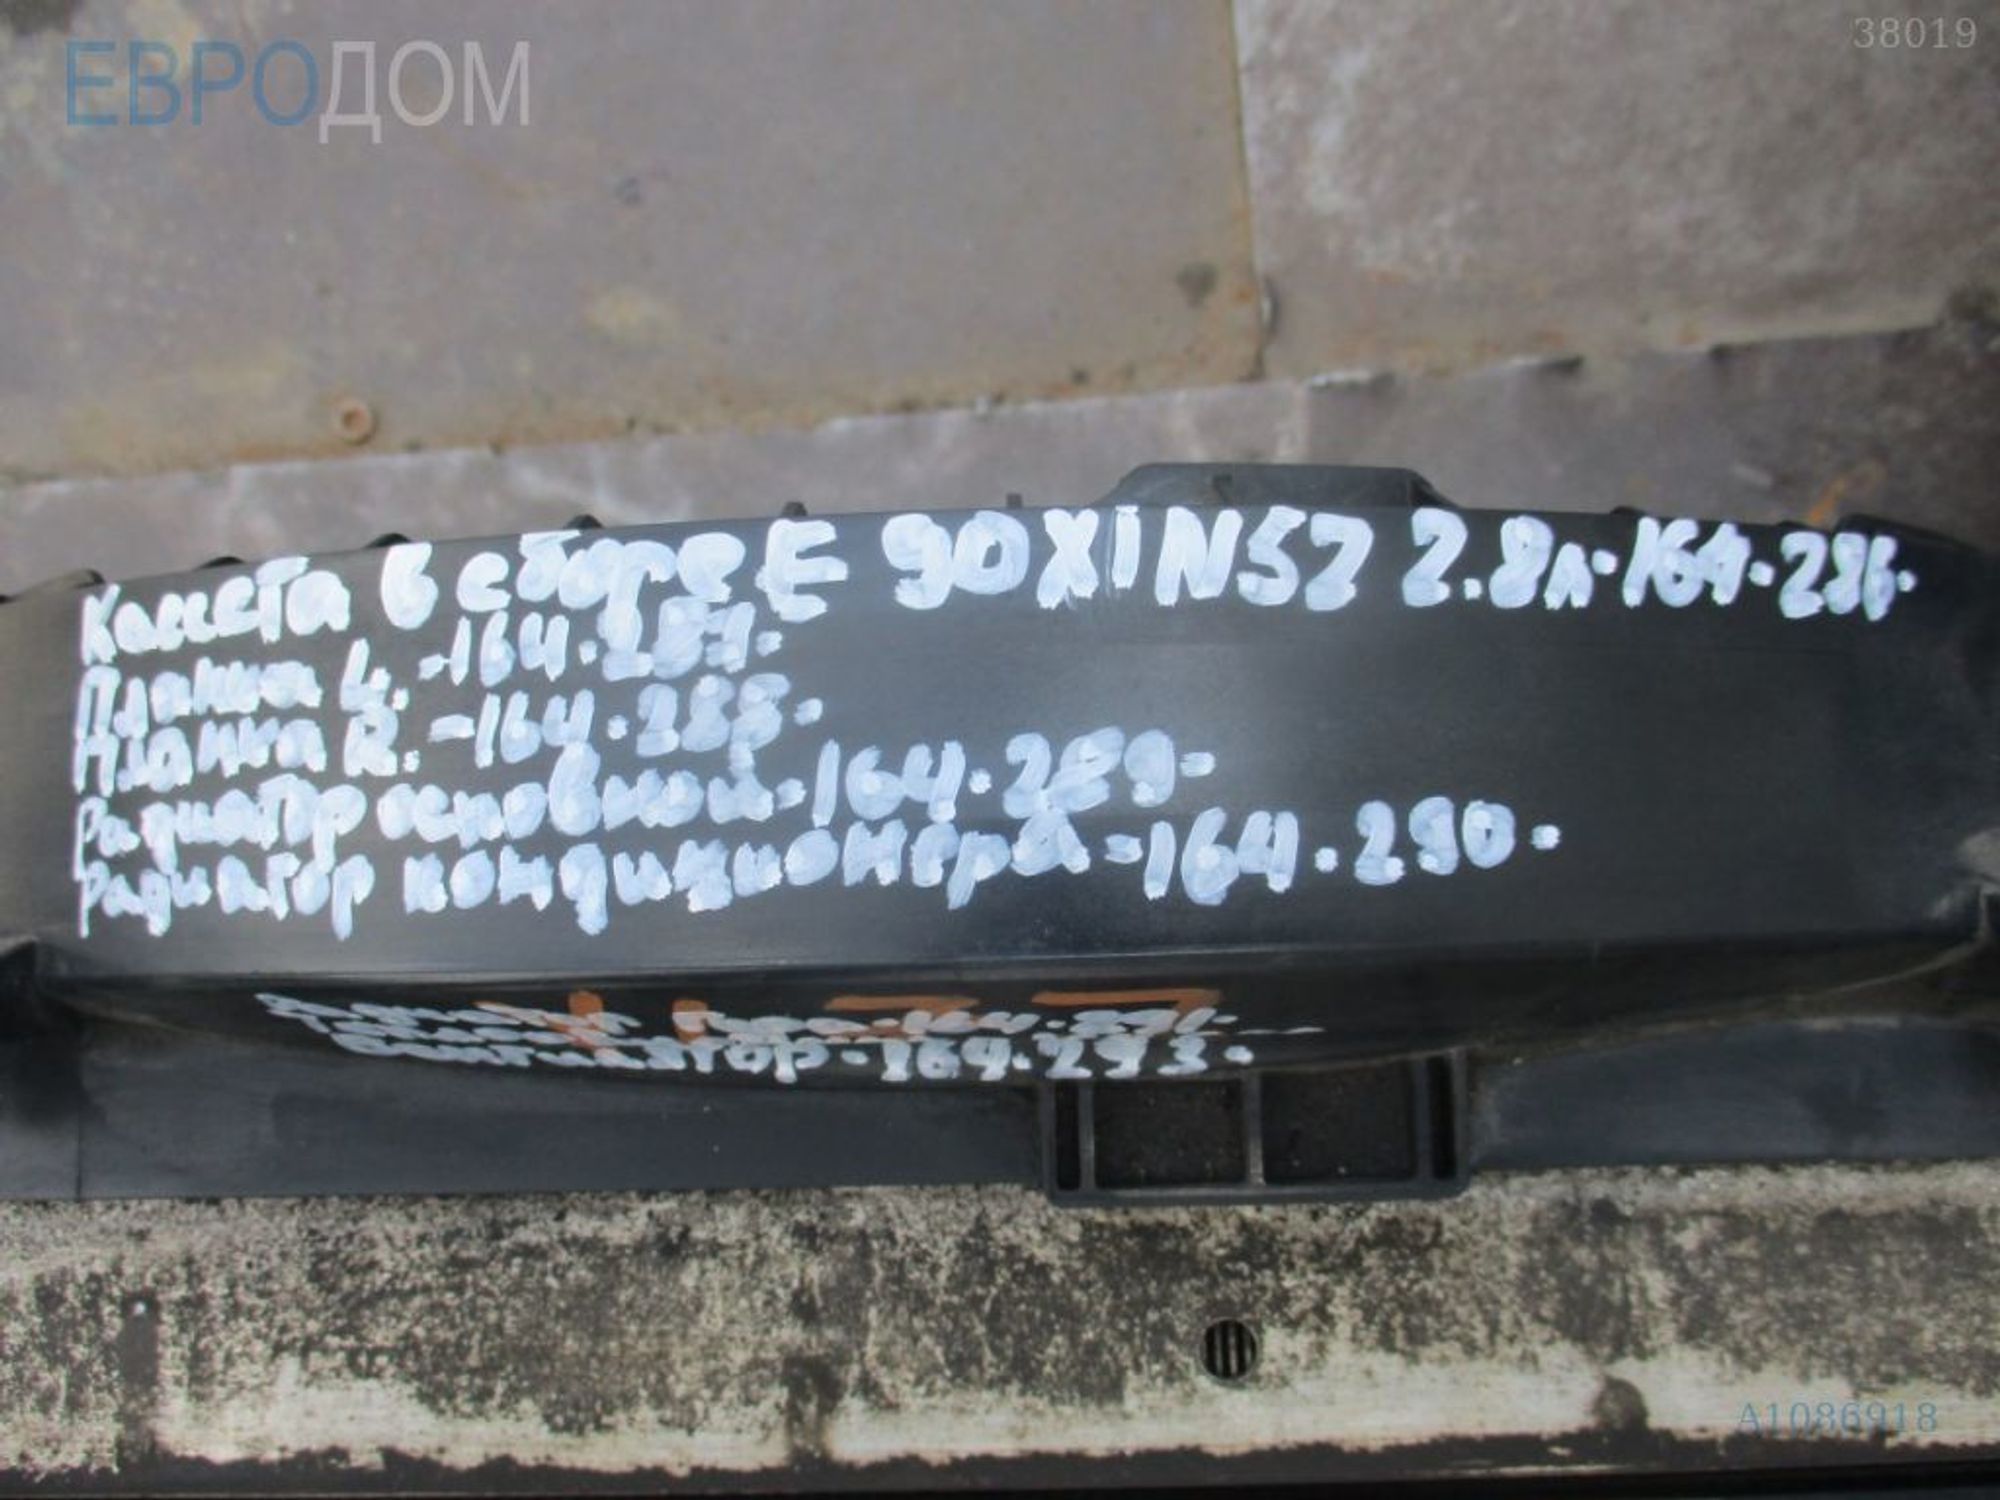 ЕВРОДОМ
38019
Кассета в сборе E 90 XI N52 2.8л. 164.286.
Планка L. -164.287.
Планка R. -164.288.
Радиатор основной - 164.289-
Радиатор кондиционера -164.290.
гура -164.291-
Вентилятор - 164.293.
A1086918